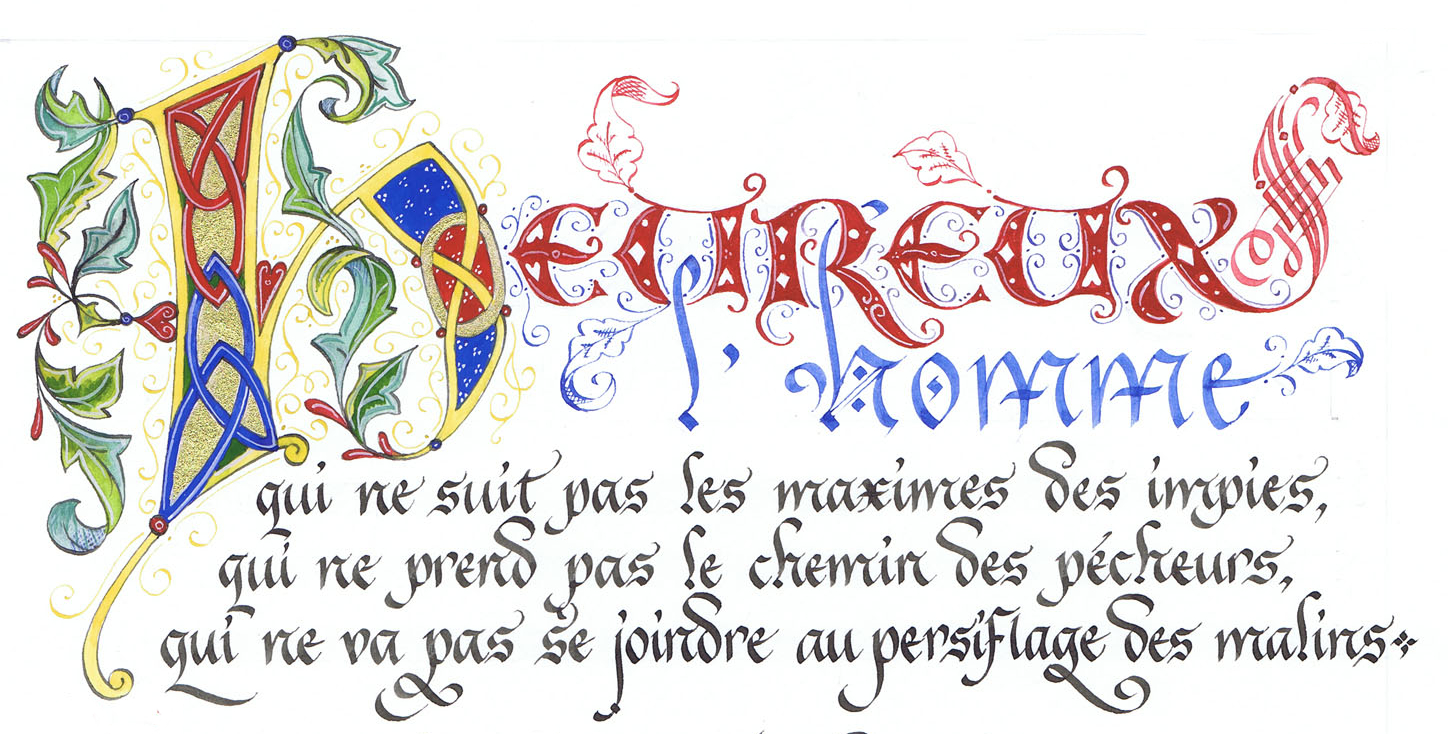 HEUREUX
l'homme
qui ne suit pas les maximes des impies,
qui ne prend pas le chemin des pécheurs,
qui ne va pas se joindre au persiflage des malins